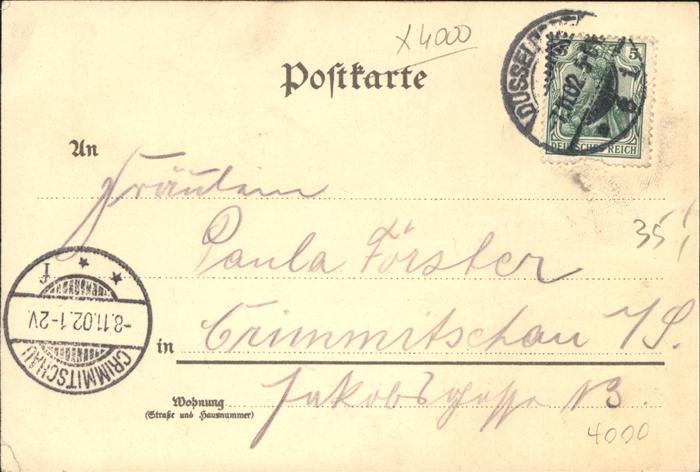 x 4000
Postkarte
DÜSSELDORF
7.11.02.5-6N
* 1 i
5
DEUTSCHES REICH
An
Fräulein
Paula Förster
35
in Crimmitschau i/S.
CRIMMITSCHAU
-8.11.02.1-2V.
f
Wohnung
(Straße und Hausnummer)
Jakobsgasse
4000